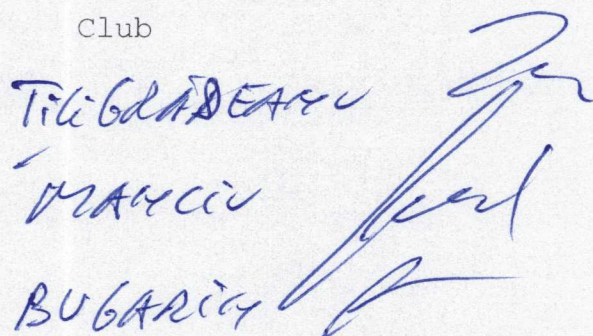 Club
TiliGRĂDEANU
MANCIU
BUGARIN